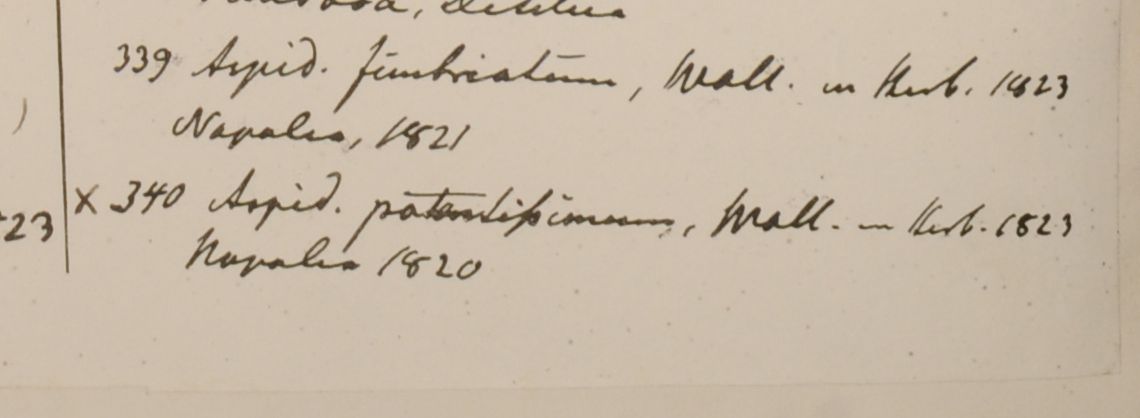 339 Aspid. fimbriatum, Wall. in Herb. 1823
Napalia, 1821
x 340 Aspid. patentissimum, Wall. in Herb. 1823
23
Napalia 1820